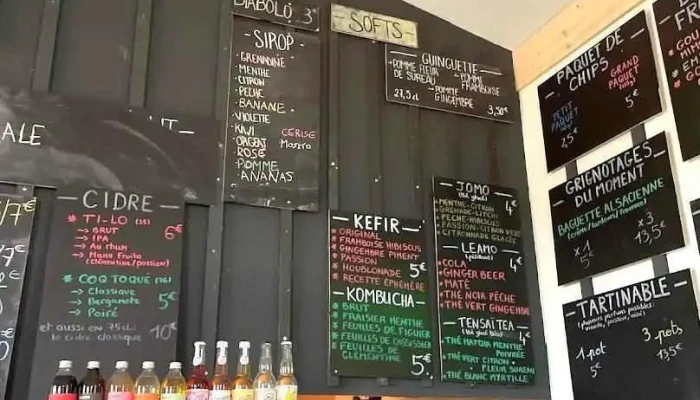 DIABOLO 3€
SIROP
GRENADINE
MENTHE
CITRON
PECHE
BANANE
VIOLETTE
KIWI
CERISE
ORGEAT
MOJITO
ROSE
POMME
ANANAS
ALE
CIDRE
TI-LO
→ BRUT
→ IPA
→ Au rhum
→ Mama Fruits
(clémentine/passion)
6€
COQ TOQUÉ
→ Classique
→ Bergamote
→ Poiré
5€
et aussi en 75cl.
le cidre classique
10€
- SOFTS -
GUINGUETTE
• POMME FLEUR
DE SUREAU
• POMME
FRAMBOISE
• POMME
GINGEMBRE
27,5cl
3,50€
- KEFIR -
• ORIGINAL
• FRAMBOISE HIBISCUS
• GINGEMBRE PIMENT
• PASSION
• HOUBLONADE
• RECETTE ÉPHÉMÈRE
5€
KOMBUCHA
• BRUT
• FRAISIER MENTHE
• FEUILLES DE FIGUIER
• FEUILLES DE CASSISSIER
• FEUILLES DE
CLÉMENTINE
5€
JOMO
(thé glacé)
4€
• MENTHE-CITRON
• GRENADE-LITCHI
• PÊCHE-PASSION
• CITRON VERT
• CITRONNADE GLACÉE
LEAMO
4€
• COLA
• GINGER BEER
• MATÉ
• THÉ NOIR PÊCHE
• THÉ VERT GINGEMBRE
TENSAI TEA
4€
• THÉ HATOUA MENTHE
POIVRÉE
• THÉ VERT CITRON
FLEUR SUREAU
• THÉ BLANC MYRTILLE
PAQUET DE
CHIPS
GRAND
PAQUET
5€
PETIT
PAQUET
2,5€
GRIGNOTAGES
DU MOMENT
BAGUETTE ALSACIENNE
x1
5€
x3
13,5€
- TARTINABLE -
1 pot
5€
3 pots
13,5€